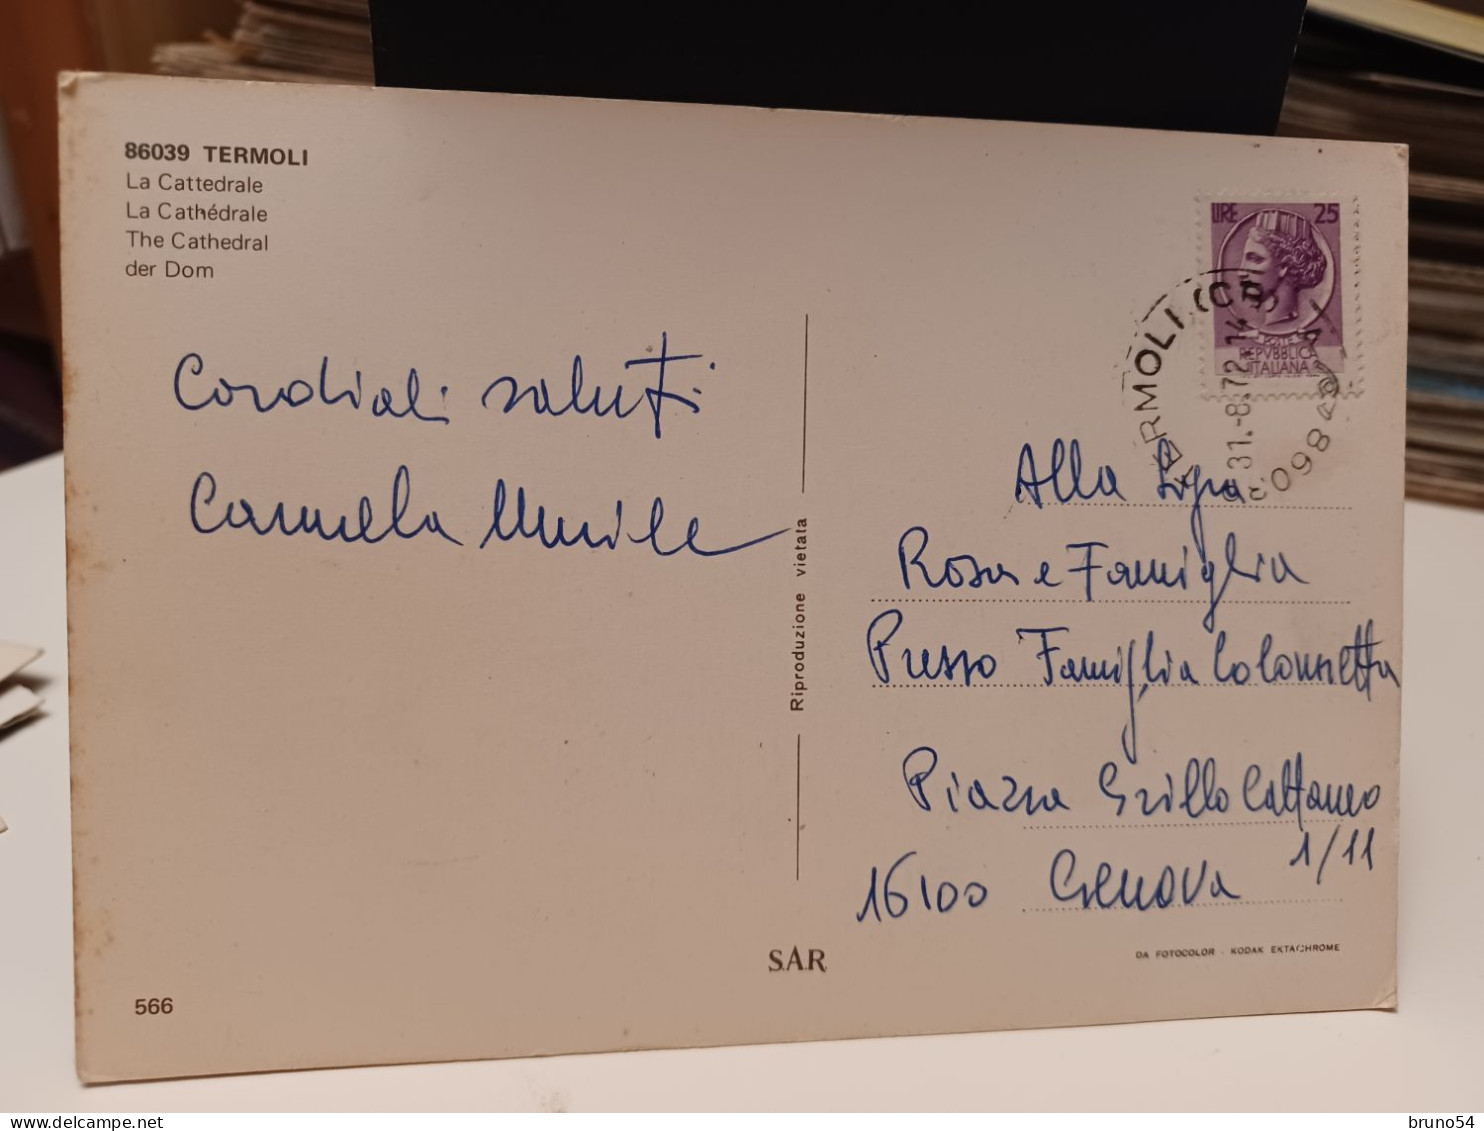 86039 TERMOLI
La Cattedrale
La Cathédrale
The Cathedral
der Dom
Cordiali saluti
Carmela
LIRE 25
POSTE
REPVBBLICA
ITALIANA
TERMOLI (CB)
31.-8.72.14
86039
Riproduzione vietata
Alla Sig.ra
Rosa e Famiglia
Presso Famiglia Colonnetta
Piazza Grillo Cattaneo
1/11
16100 Genova
S.A.R
DA FOTOCOLOR - KODAK EKTACHROME
566
delcampe.net
bruno54